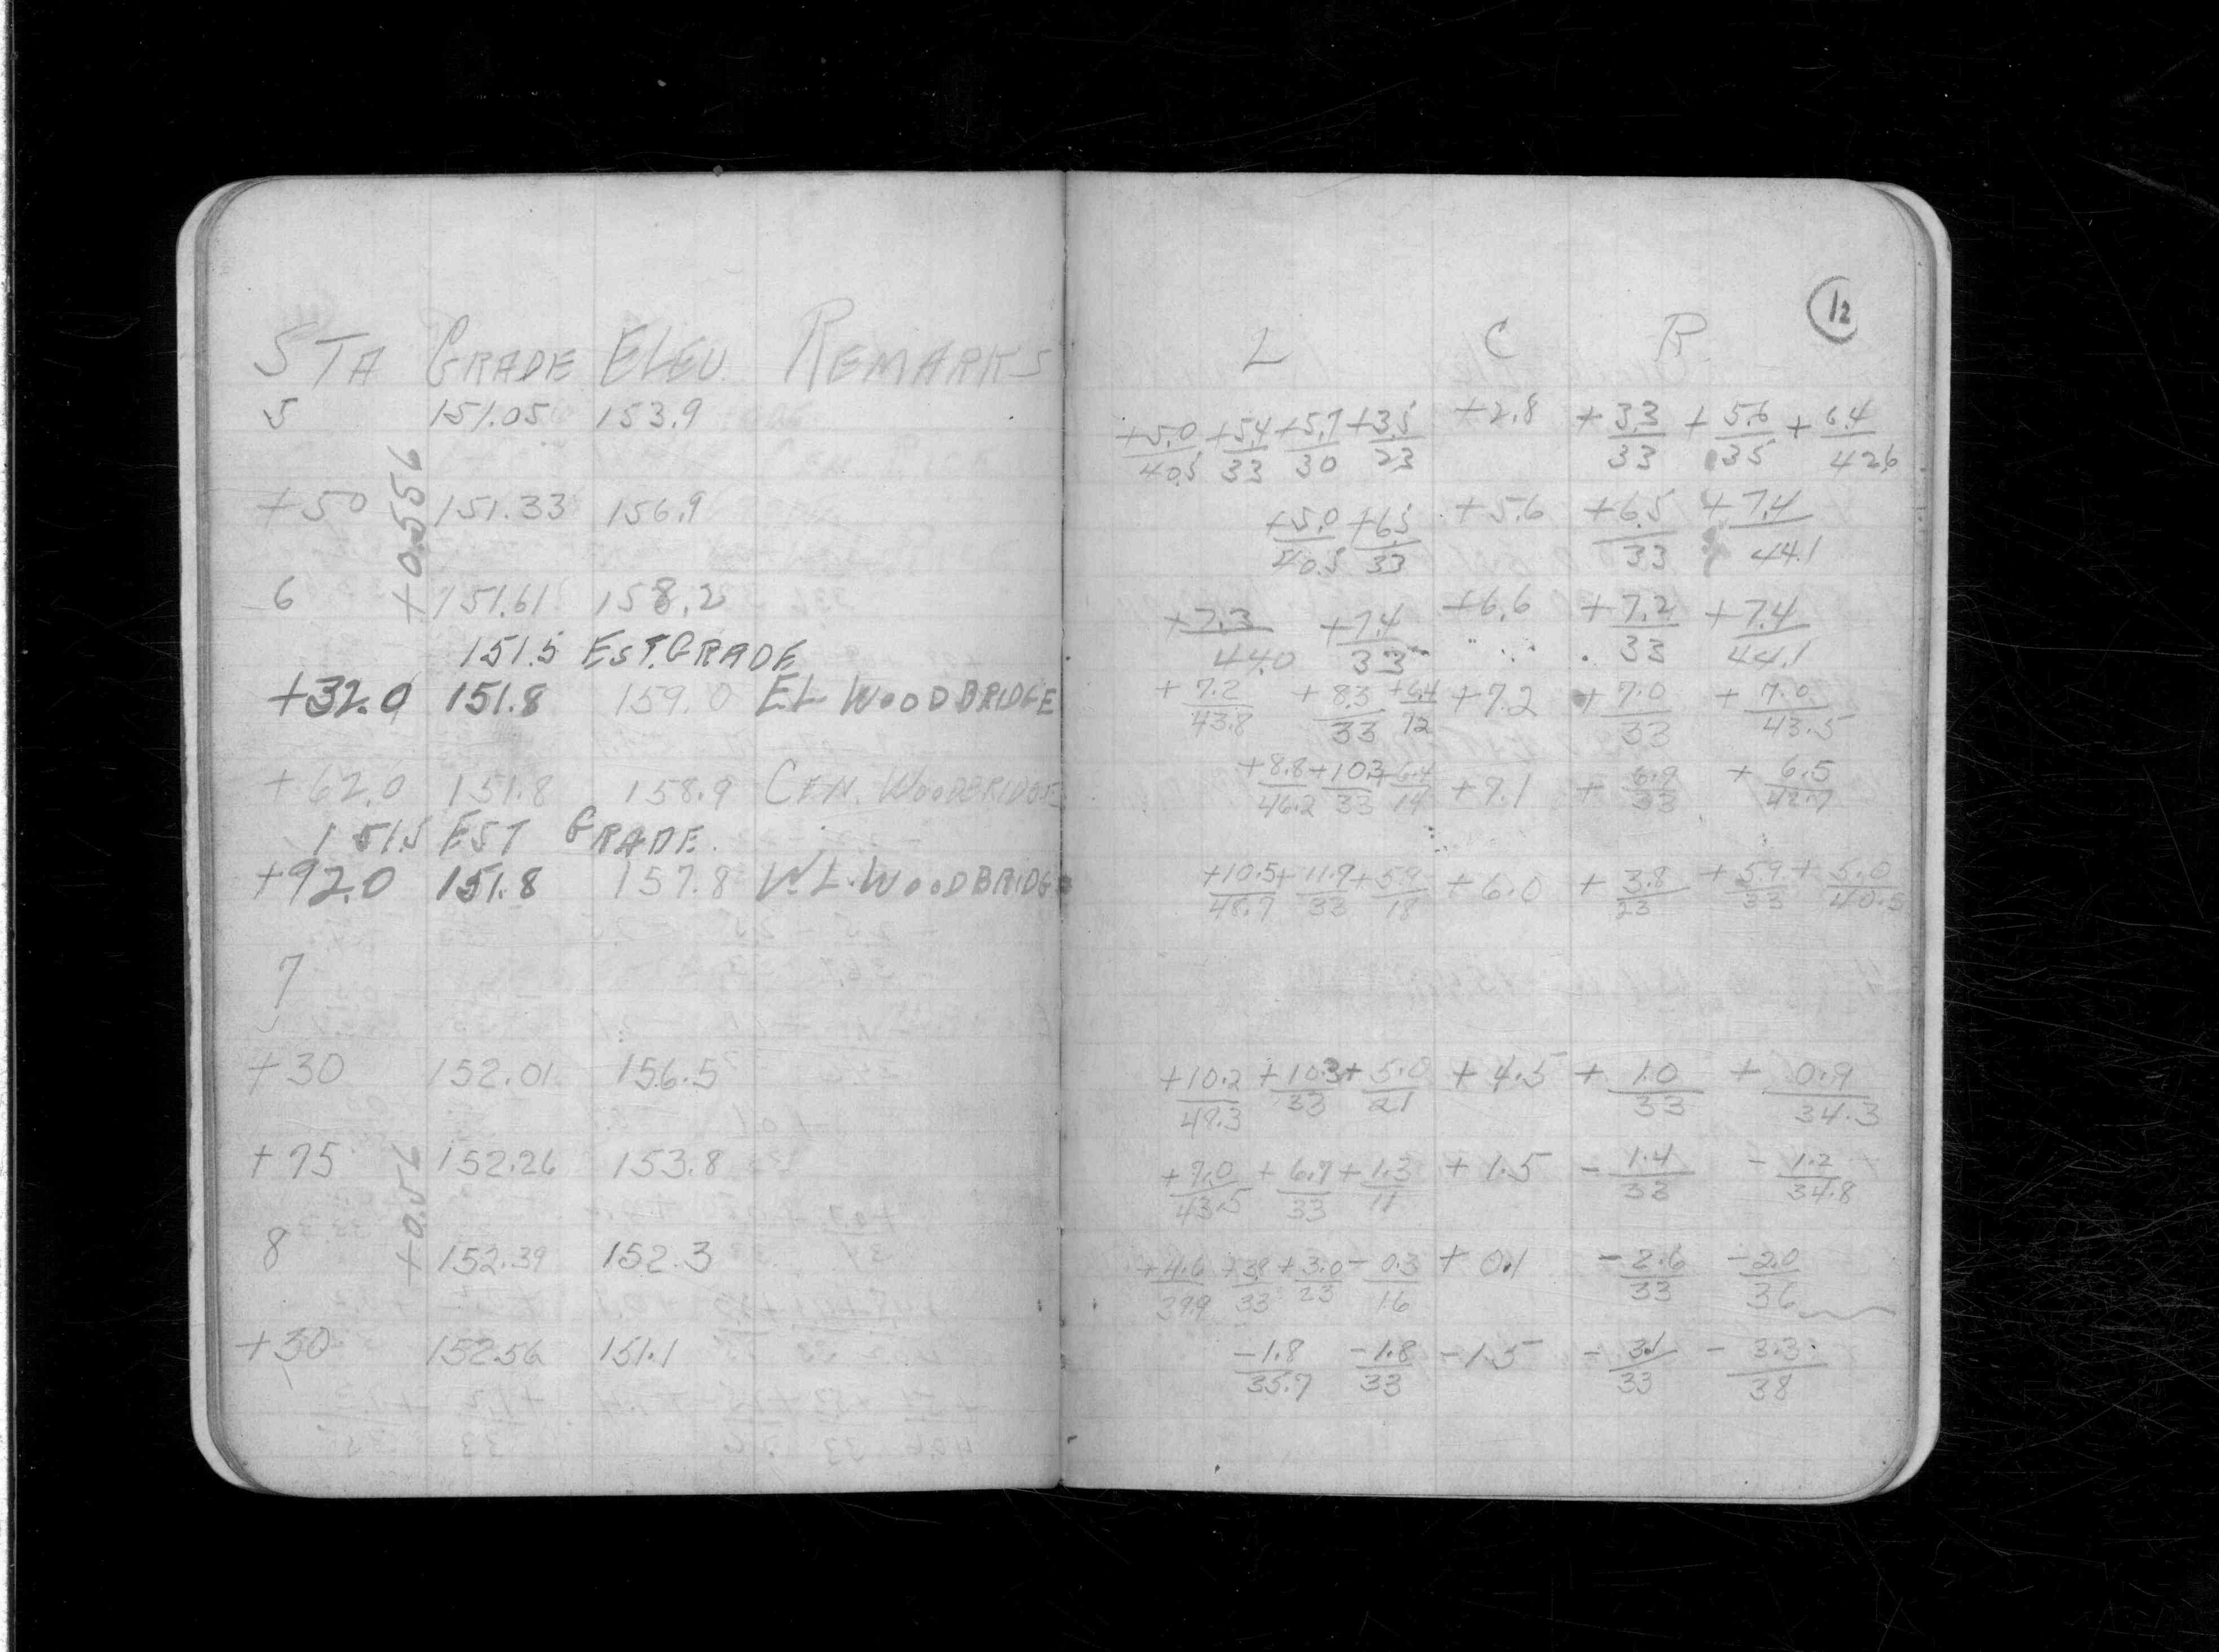 STA GRADE ELEV. REMARKS
5 151.05 153.9
+50 151.33 156.9
+0.556
6 151.61 158.2
151.5 EST. GRADE
+32.0 151.8 159.0 E.L. WOODBRIDGE
+62.0 151.8 158.9 CEN. WOODBRIDGE
151.5 EST GRADE.
+92.0 151.8 157.8 W.L. WOODBRIDG
7
+30 152.01 156.5
+75 152.26 153.8
+0.56
8 152.39 152.3
+30 152.56 151.1
12
L C R
+5.0 +5.4 +5.7 +3.5 +2.8 +3.3 +5.6 +6.4
40.5 33 30 23 33 35 42.6
+5.0 +6.5 +5.6 +6.5 +7.4
40.5 33 33 44.1
+7.3 +7.4 +6.6 +7.2 +7.4
44.0 33 33 44.1
+7.2 +8.3 +6.4 +7.2 +7.0 +7.0
43.8 33 12 33 43.5
+8.8 +10.3 +6.4 +7.1 +6.9 +6.5
46.2 33 14 33 42.7
+10.5 +11.9 +5.9 +6.0 +3.8 +5.9 +5.0
48.7 33 18 23 33 40.5
+10.2 +10.3 +5.0 +4.5 +1.0 +0.9
48.3 33 21 33 34.3
+7.0 +6.7 +1.3 +1.5 -1.4 -1.2
43.5 33 11 33 34.8
+4.6 +3.8 +3.0 -0.3 +0.1 -2.6 -2.0
39.9 33 23 16 33 36
-1.8 -1.8 -1.5 -3.1 -3.3
35.7 33 33 38